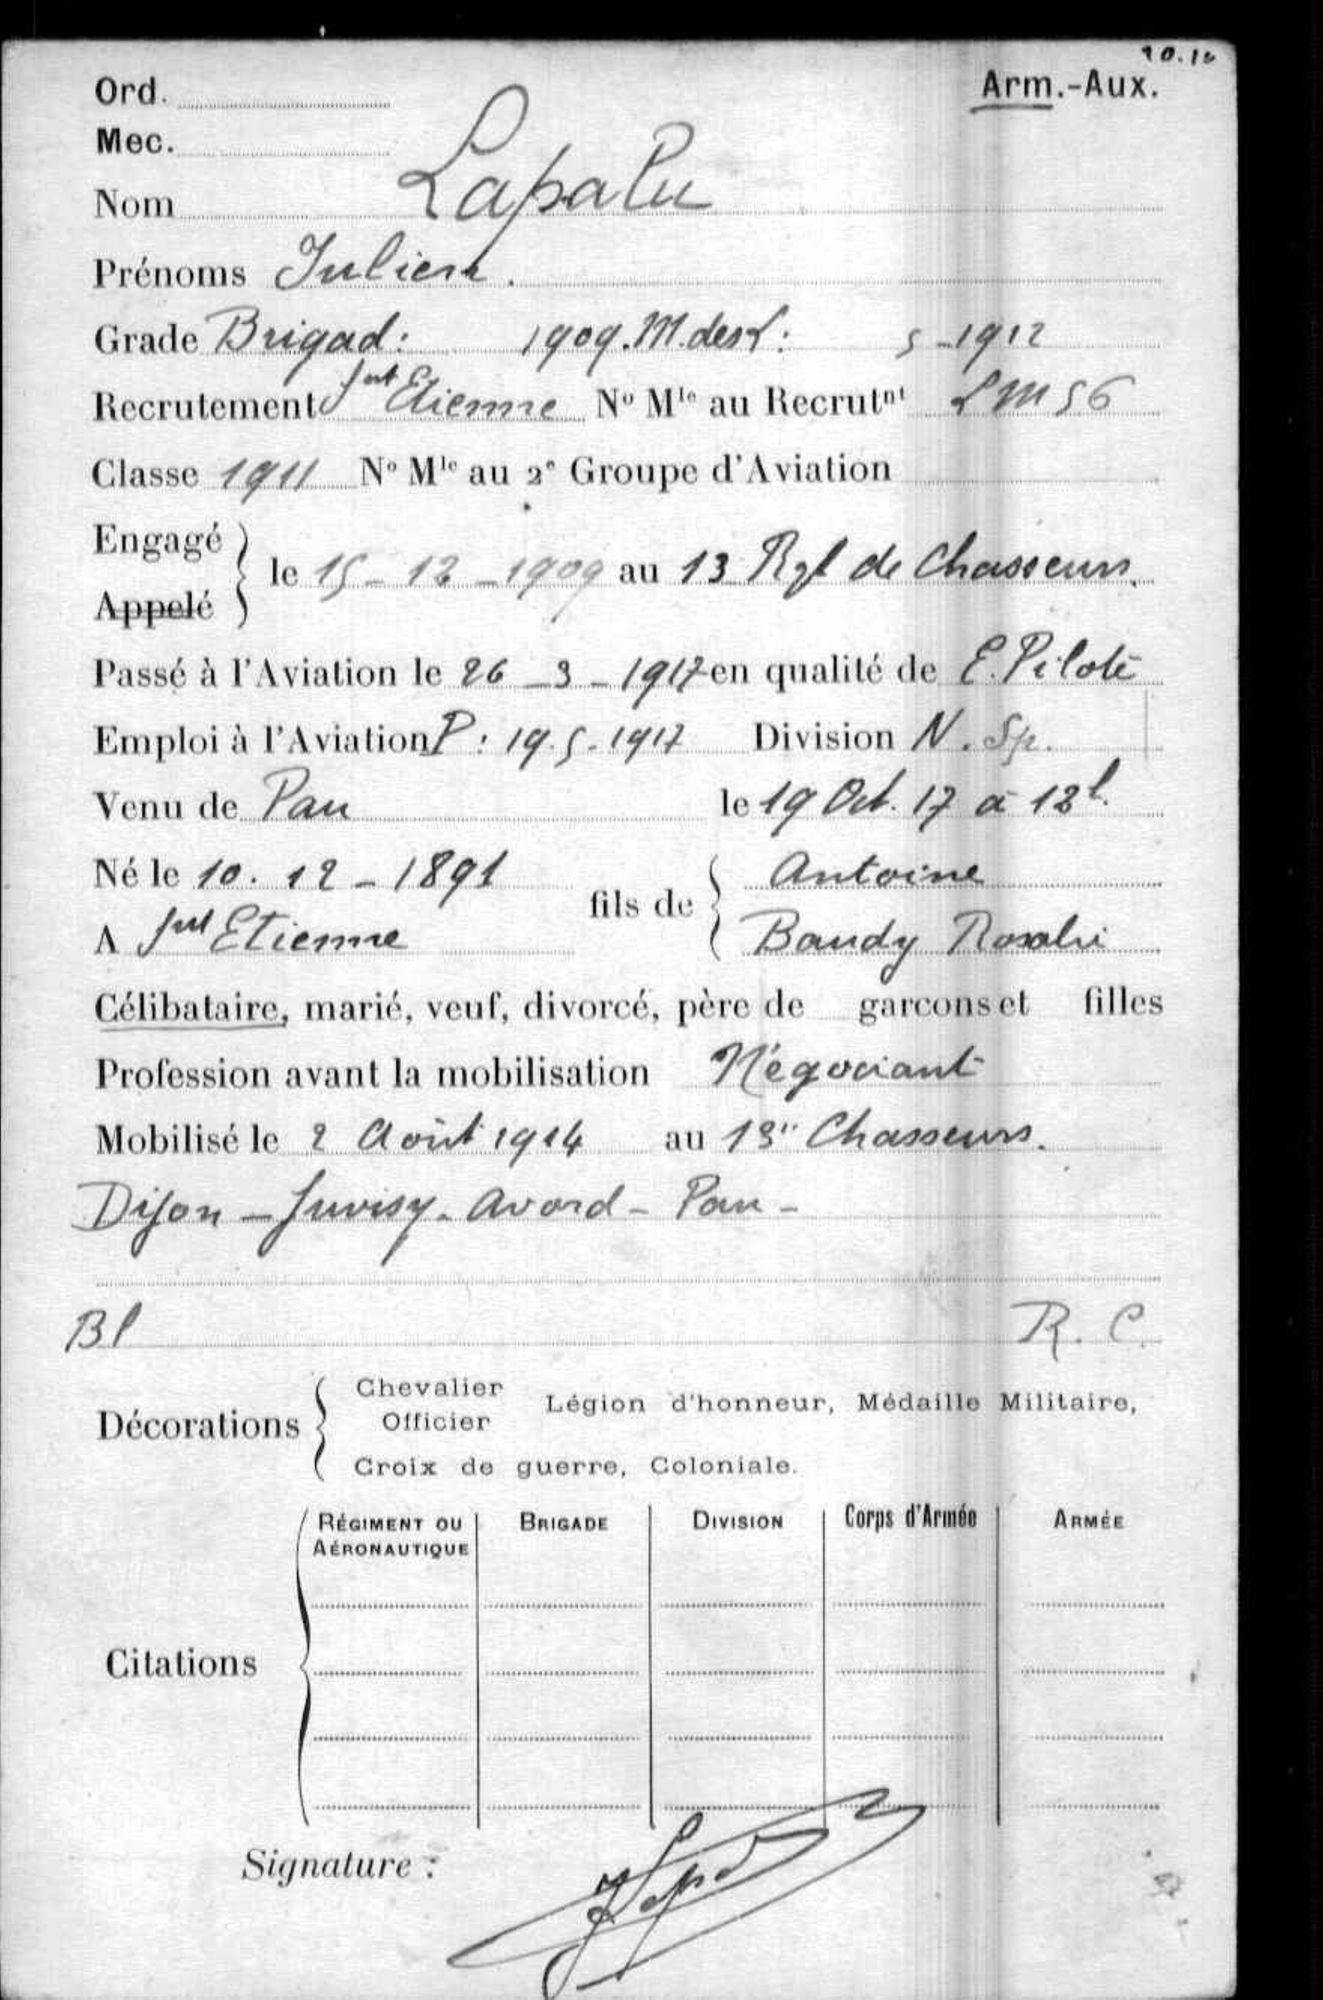 20.10
Ord.
Arm.-Aux.
Mec.
Nom Lapalu
Prénoms Julien.
Grade Brigad: 1909. M. des L: 5-1912
Recrutement Snt Etienne No Mle au Recrutnt LM 56
Classe 1911 No Mle au 2e Groupe d'Aviation
Engagé
Appelé
le 15-12-1909 au 13 Rgt de Chasseurs.
Passé à l'Aviation le 26-3-1917 en qualité de E. Pilote
Emploi à l'Aviation P: 19.5.1917 Division N. Sp.
Venu de Pau le 19 Oct. 17 à 12h.
Né le 10.12-1891
A Snt Etienne
fils de
Antoine
Baudy Rosalie
Célibataire, marié, veuf, divorcé, père de garcons et filles
Profession avant la mobilisation Négociant
Mobilisé le 2 Août 1914 au 13" Chasseurs.
Dijon - Juvisy - Avord - Pau -
Bl R. C.
Décorations
Chevalier
Officier
Légion d'honneur, Médaille Militaire,
Croix de guerre, Coloniale.
Citations
RÉGIMENT OU AÉRONAUTIQUE
BRIGADE
DIVISION
Corps d'Armée
ARMÉE
Signature :